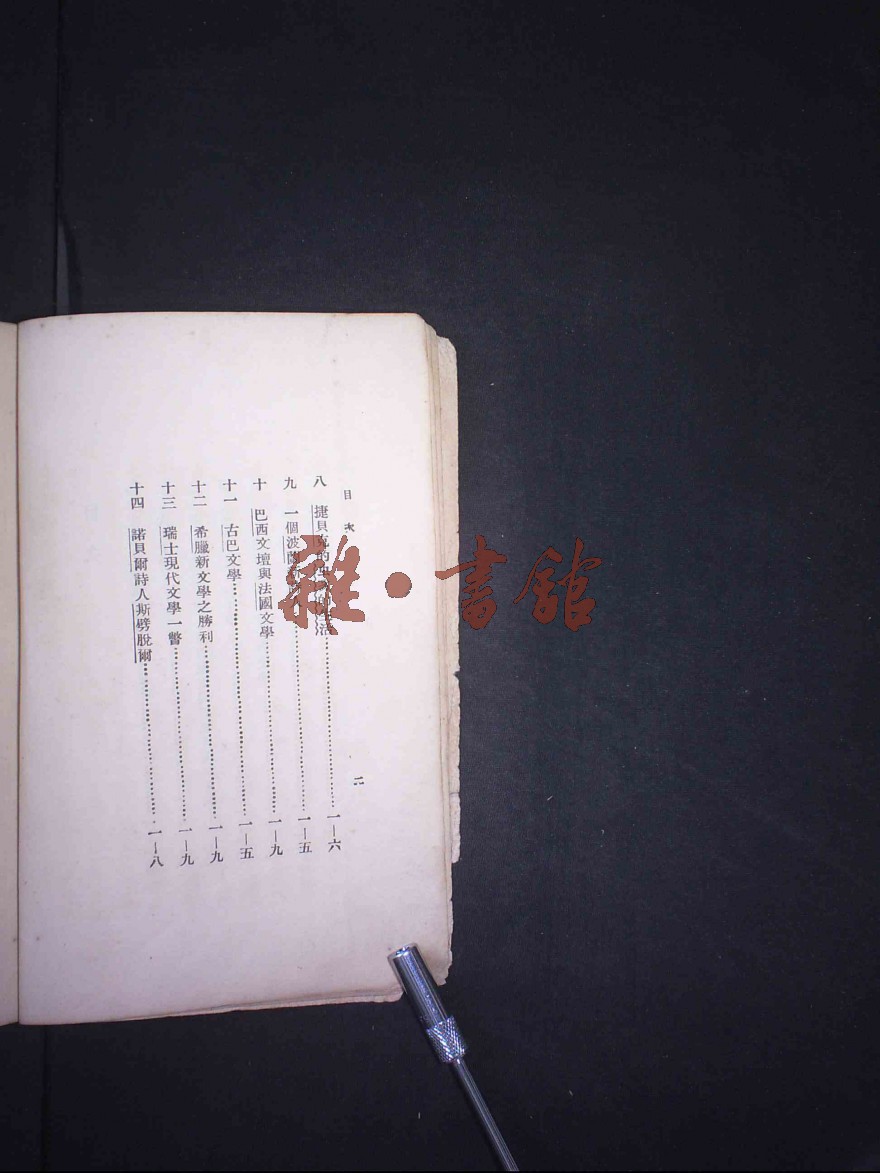 目 次
二
八 捷貝克的 活……一—六
九 一個波 ……一—五
十 巴西文壇與法國文學……一—九
十一 古巴文學……一—五
十二 希臘新文學之勝利……一—九
十三 瑞士現代文學一瞥……一—九
十四 諾貝爾詩人斯劈脫爾……一—八
雜·書館